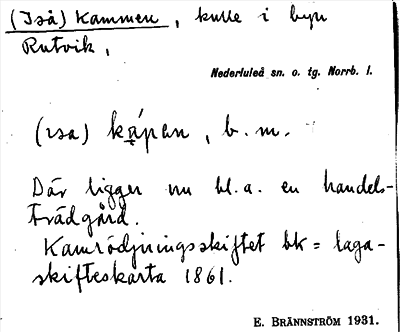 (Iså) Kammen, kulle i byn
Rutvik,
Nederluleå sn. o. tg. Norrb. l.
(ɪsa) ká̱pan, b. m.
Där ligger nu bl. a. en handels-
trädgård.
Kamrödjningsskiftet bk = laga-
skifteskarta 1861.
E. BRÄNNSTRÖM 1931.